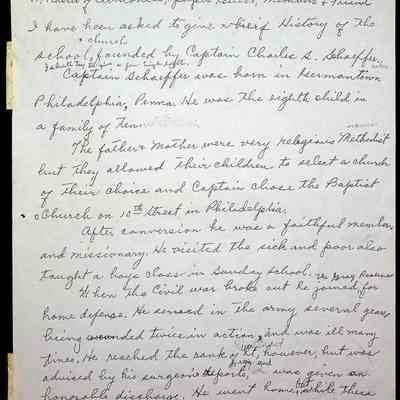 of Ceremonies, Friend
I have been asked to give a brief History of the
& church
school, founded by Captain Charles S. Schaeffer.
Captain Schaeffer was born in Germantown
Philadelphia, Penna. He was the eighth child in
a family of ten.
The father & Mother were very religious Methodist
but they allowed their children to select a church
of their choice and Captain Chose the Baptist
Church on 10th Street in Philadelphia.
After conversion he was a faithful member
and missionary. He visited the sick and poor also
taught a boys class in Sunday School.
When the Civil War broke out he joined for
home defense. He served in the army several years
being wounded twice in action, and was ill many
times. He reached the rank of Lt, however, but was
advised by his surgeon was given an
honorable discharge. He went home, but while there